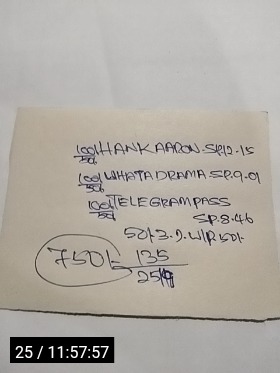 100/50/- HANKAARON-SP.12-15
100/50/- WHATADRAMA.SP.9-01
100/50/- TELEGRAMPASS
SP.8.46
50/-3.D.W/P.150/-
750/- 135
25
25 / 11:57:57